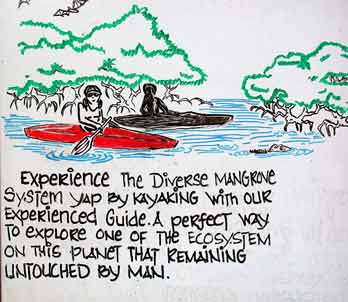 Experience The Diverse MANGROVE
System yap By KAyAKiNg WiTH OUR
Experienced Guide. A perfect way
TO explore ONE OF THE ECOSYSTEM
ON THIS PLANET THAT REMAINING
UNTOUCHED BY MAN.